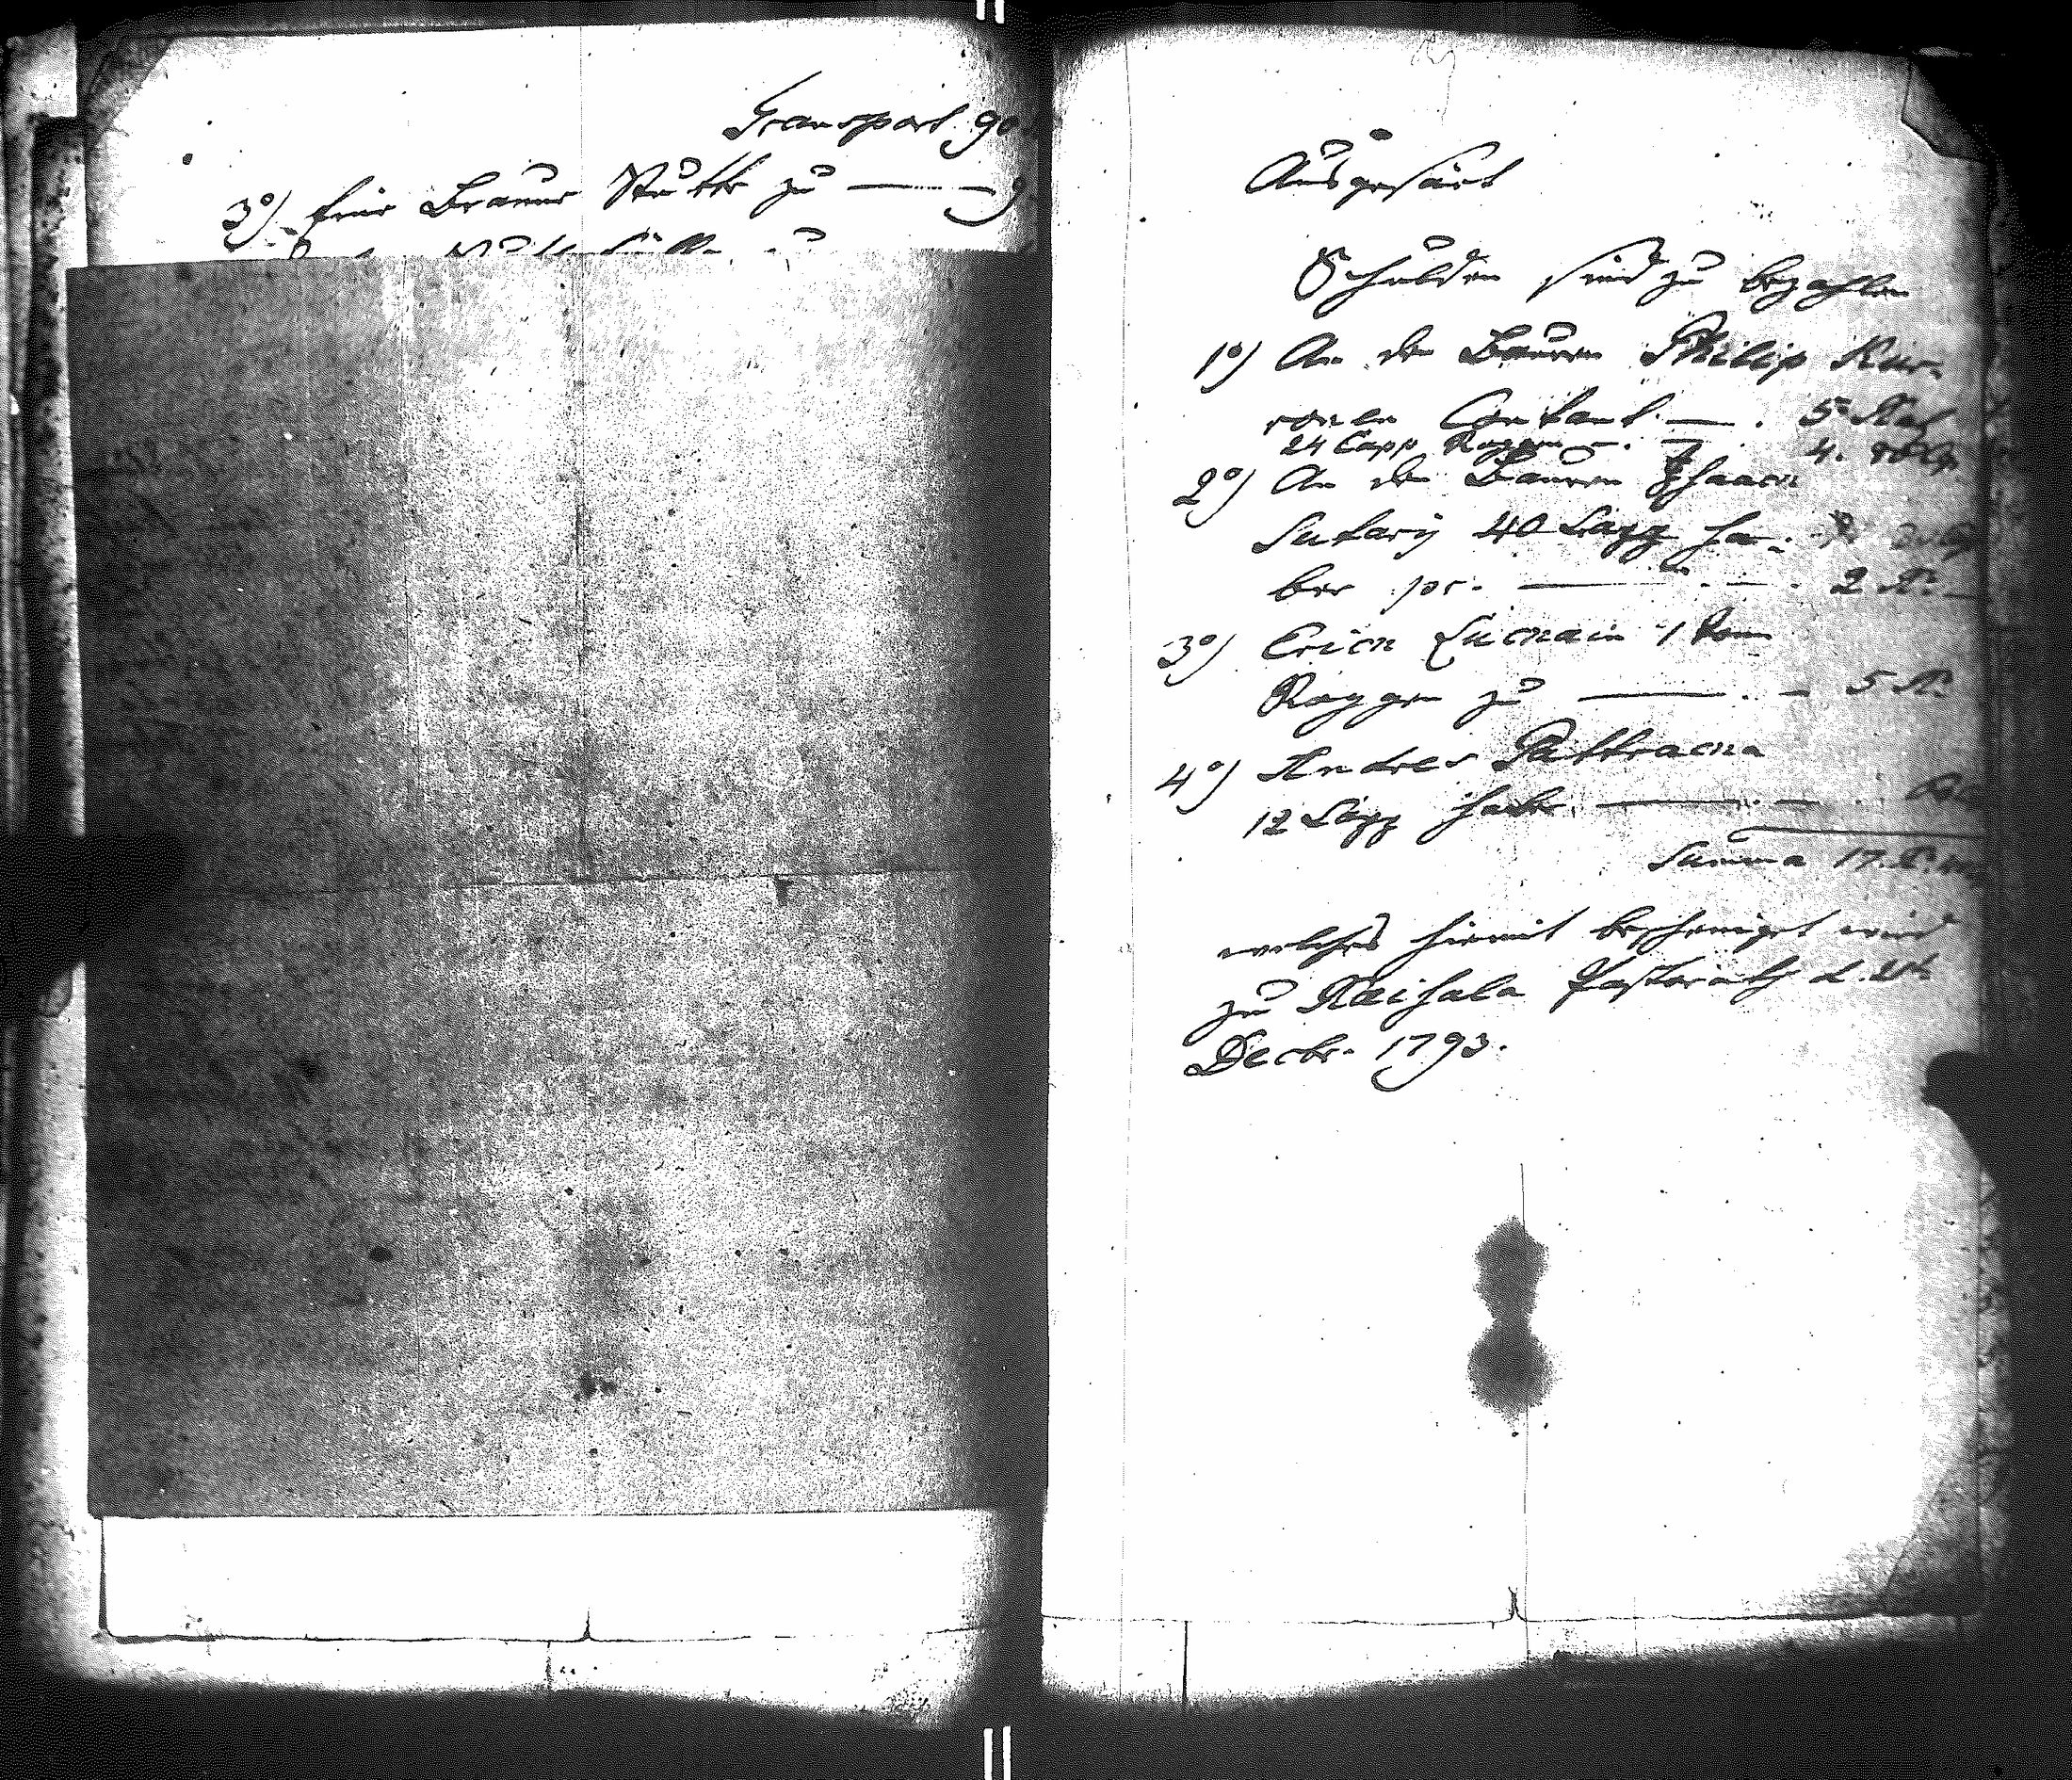 Transport 90
3º) Eine Braune Stutte zu — 9
Ausgesäet
Schulden sind zu bezahlen
1º) An den Bauren Philip Kur-
ronen Contant — 5 Rub
24 Capp Roggen — 4.
2º) An den Bauren Isaach
Sutary 40 Capp Ha-
ber pr. — 2 R.
3º) Erich Lucnain 1 Tonn
Roggen zu — 5 R.
4º) Andres Pattracna
12 Capp Haber —
Summa 17. R.
welches hiemit bescheiniget wird
zu Räisala Pastorath d.
Decbr. 1793.